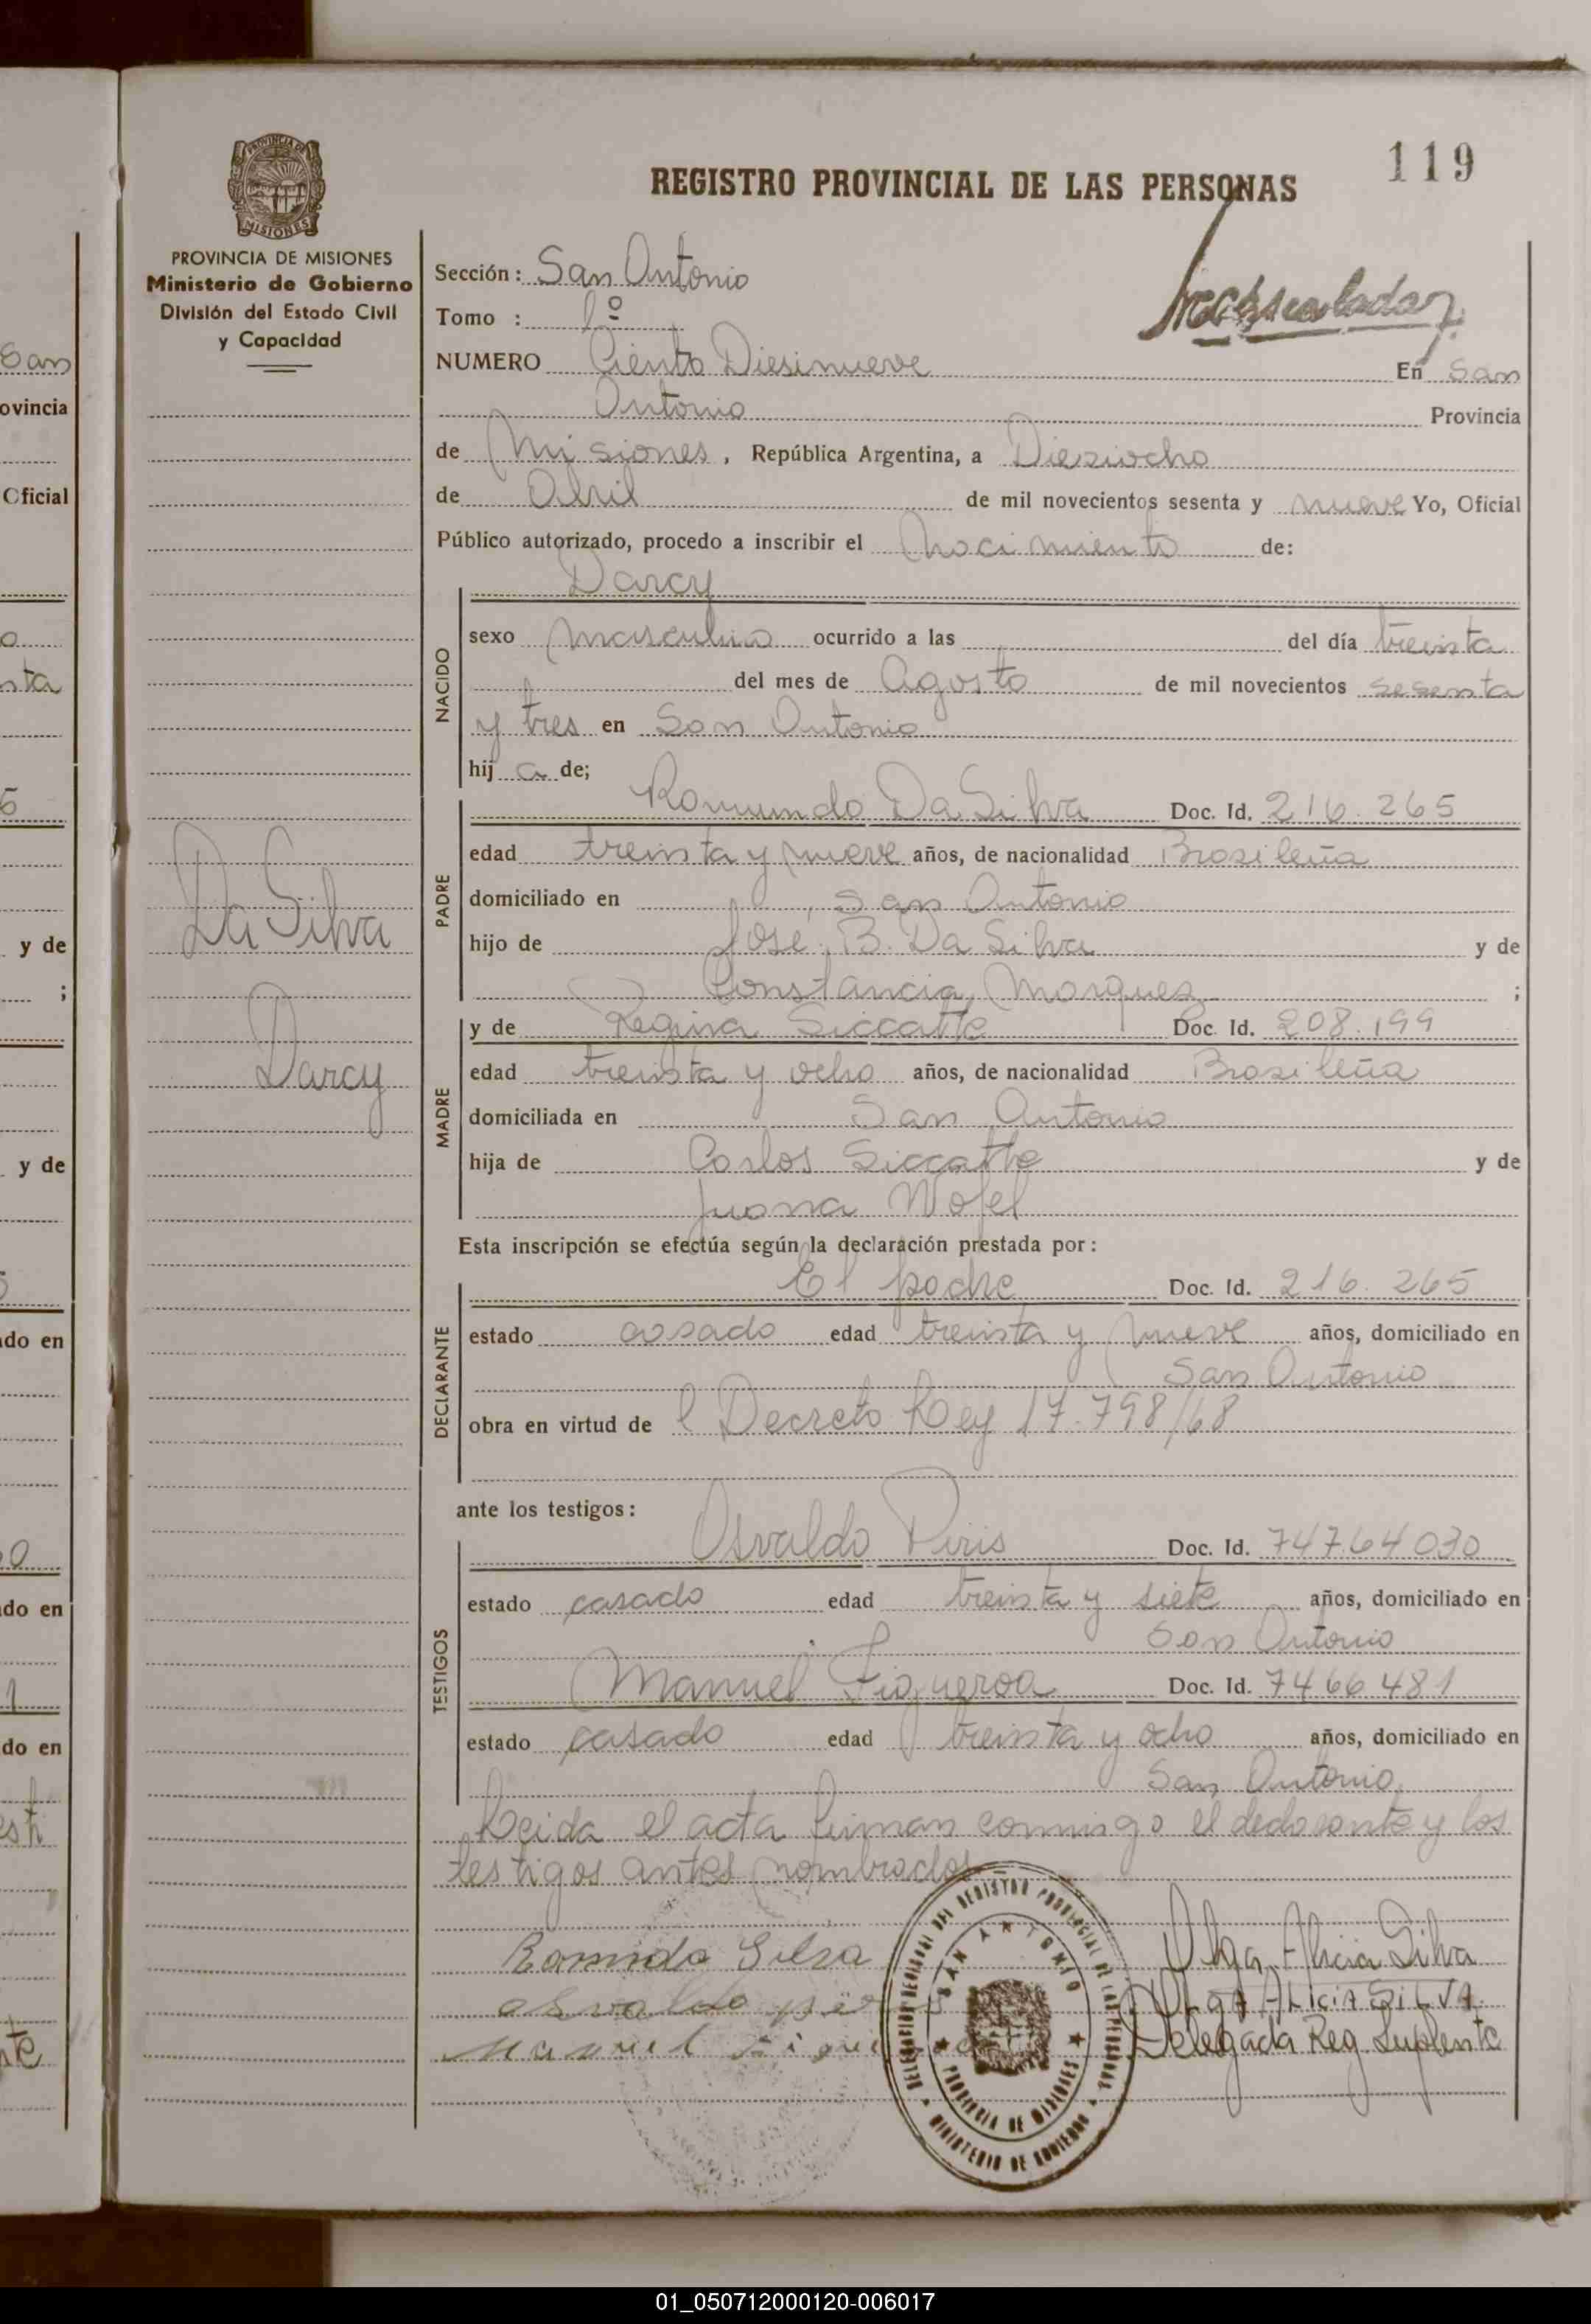 119
REGISTRO PROVINCIAL DE LAS PERSONAS
PROVINCIA DE MISIONES
MISIONES
PROVINCIA DE MISIONES
Ministerio de Gobierno
División del Estado Civil
y Capacidad
Sección: San Antonio
Tomo : 1º
NUMERO Ciento Diesinueve En San
Antonio Provincia
de Misiones, República Argentina, a Dieziocho
de Abril de mil novecientos sesenta y nueve Yo, Oficial
Público autorizado, procedo a inscribir el Nacimiento de:
Darcy
NACIDO
sexo masculino ocurrido a las del día treinta
del mes de Agosto de mil novecientos sesenta
y tres en San Antonio
hij a de;
Romundo Da Silva Doc. Id. 216.265
PADRE
edad treinta y nueve años, de nacionalidad Brasileña
domiciliado en San Antonio
hijo de José B. Da Silva y de
Constancia Marques ;
Da Silva
Darcy
y de Regina Siccatte Doc. Id. 208.199
MADRE
edad treinta y ocho años, de nacionalidad Brasileña
domiciliada en San Antonio
hija de Carlos Siccatte y de
Juana Wofel
Esta inscripción se efectúa según la declaración prestada por:
El padre Doc. Id. 216.265
DECLARANTE
estado casado edad treinta y nueve años, domiciliado en
San Antonio
obra en virtud de l Decreto Ley 17.798/68
ante los testigos:
Osvaldo Piris Doc. Id. 74764030
TESTIGOS
estado casado edad treinta y siete años, domiciliado en
San Antonio
Manuel Figueroa Doc. Id. 7466481
estado casado edad treinta y ocho años, domiciliado en
San Antonio
Leida el acta firman conmigo el declarante y los
testigos antes nombrados
Romindo Silva
Osvaldo
Manuel
Olga Alicia Silva
OLGA ALICIA SILVA
Delegada Reg. Suplente
DEL REGISTRO PROVINCIAL DE LAS PERSONAS
SAN ANTONIO
PROVINCIA DE MISIONES
MINISTERIO DE GOBIERNO
San
ovincia
Oficial
y de
;
y de
do en
do en
do en
01_050712000120-006017